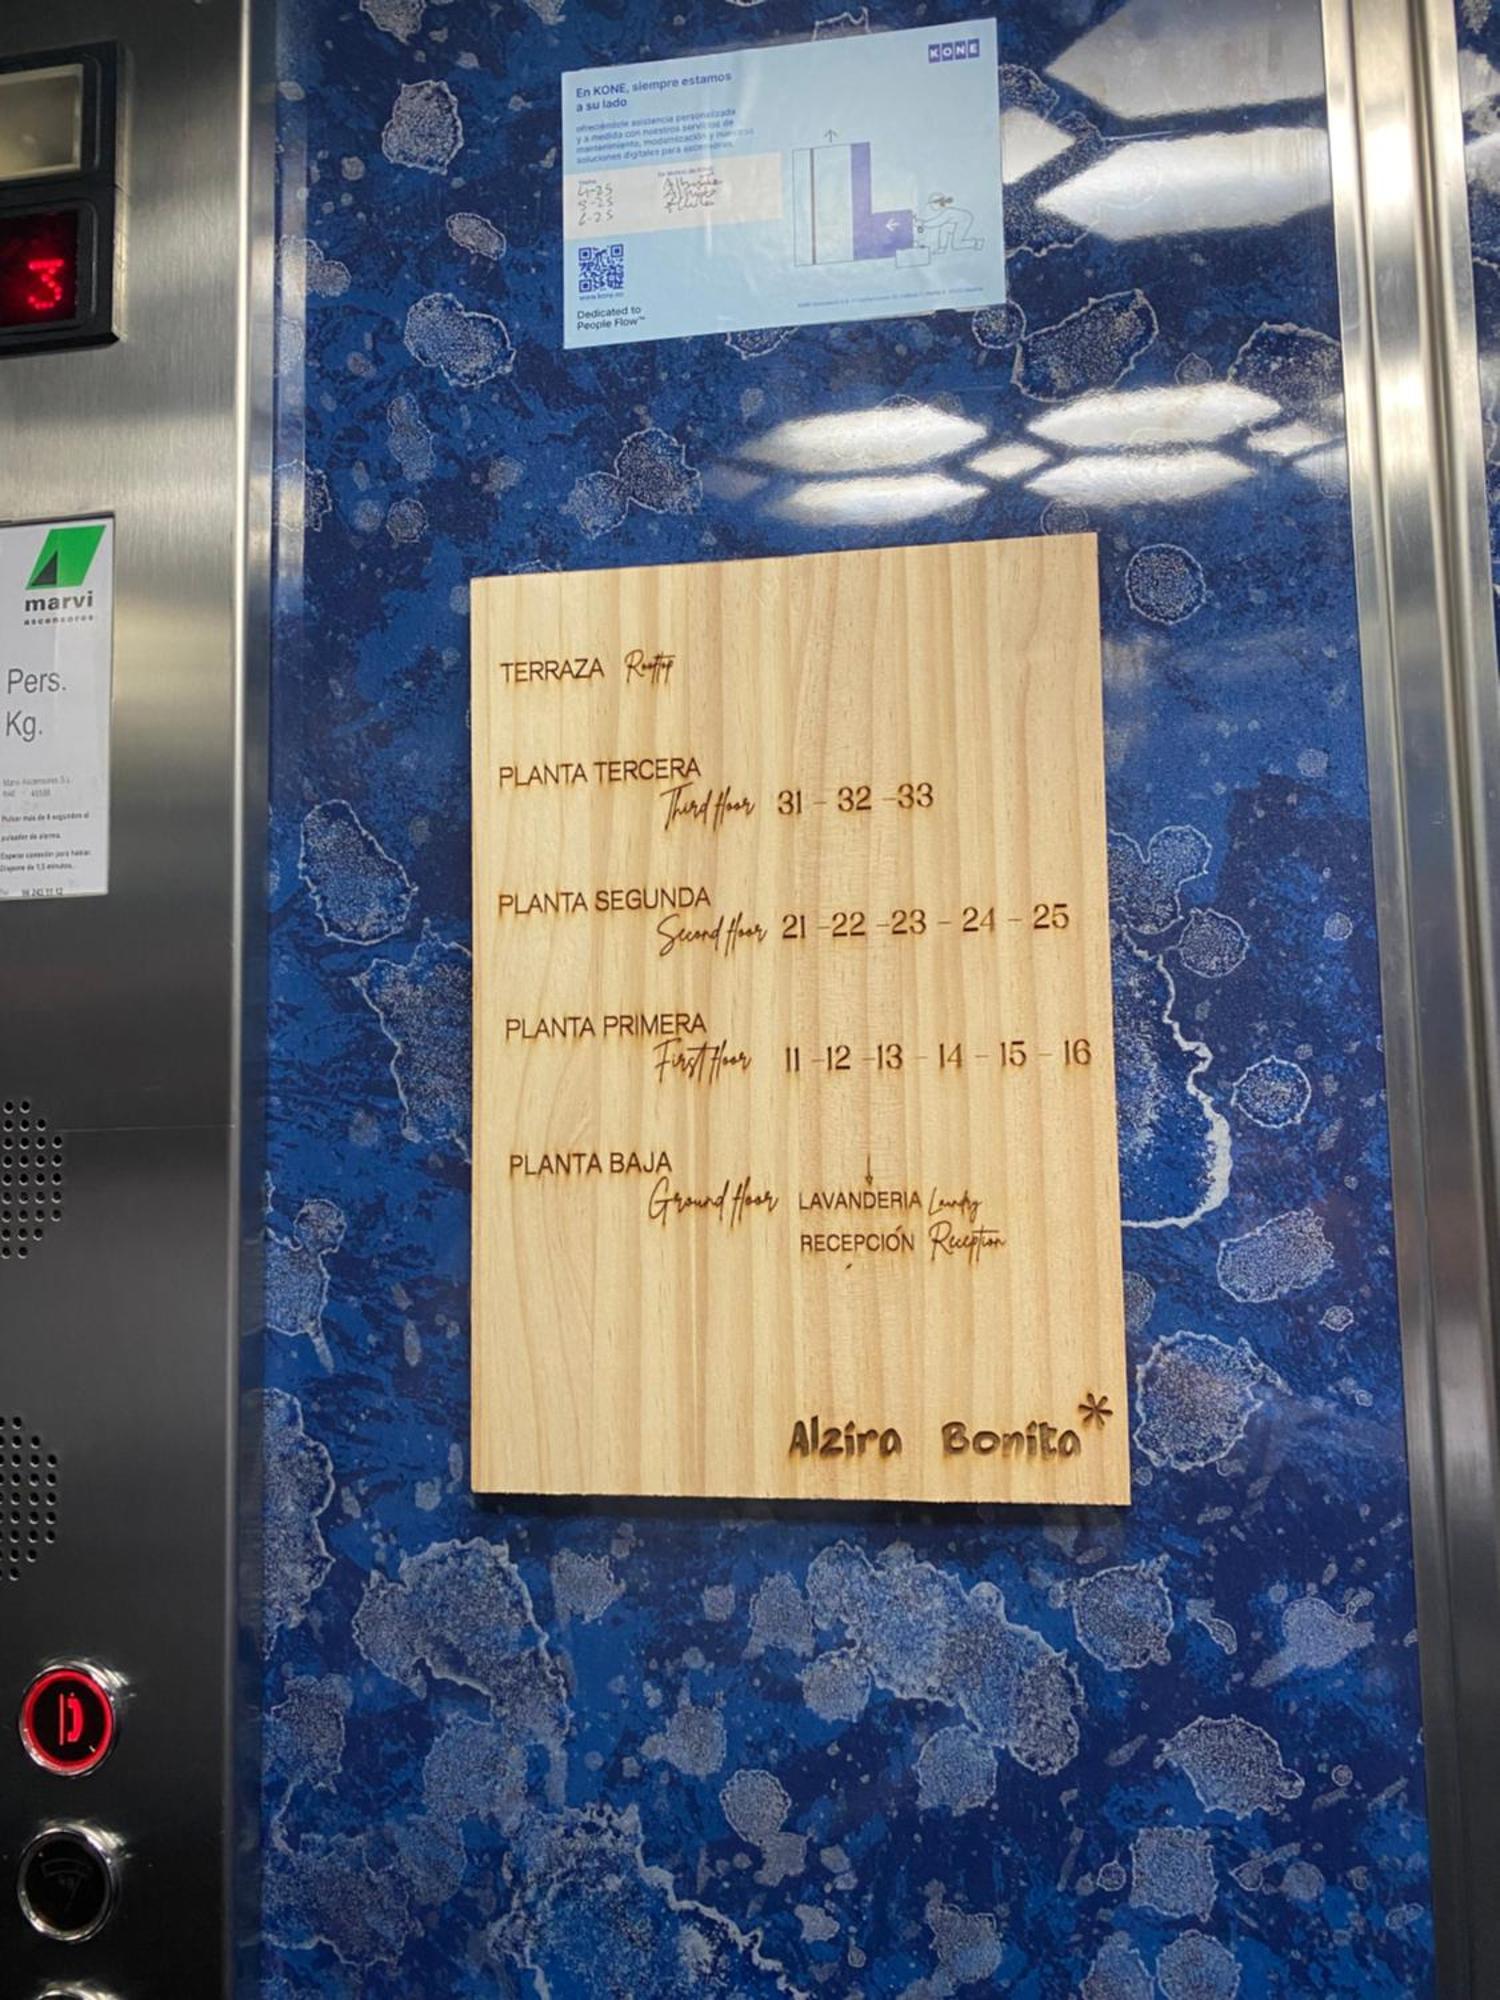 KONE
En KONE, siempre estamos
a su lado
ofreciéndole asistencia personalizada
y a medida con nuestros servicios de
mantenimiento, modernización y nuevas
soluciones digitales para ascensores.
4-25
5-25
6-25
www.kone.es
Dedicated to
People Flow™
3
marvi
ascensores
Pers.
Kg.
Marvi Ascensores S.L.
Pulsar más de 4 segundos el
pulsador de alarma.
Esperar conexión para hablar.
Dispone de 1,5 minutos.
96 242 11 12
TERRAZA Rooftop
PLANTA TERCERA
Third floor 31 - 32 -33
PLANTA SEGUNDA
Second floor 21 -22 -23 - 24 - 25
PLANTA PRIMERA
First floor 11 -12 -13 - 14 - 15 - 16
PLANTA BAJA
Ground floor LAVANDERIA Laundry
RECEPCIÓN Reception
Alzira Bonita*